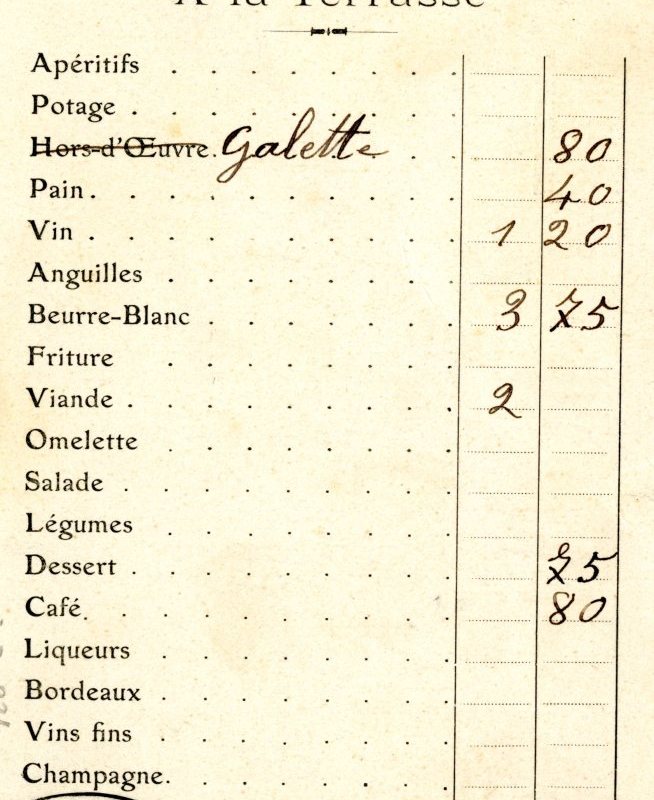 A la Terrasse
Apéritifs
Potage
Hors-d'Œuvre. Galette 80
Pain 40
Vin 1 20
Anguilles
Beurre-Blanc 3 75
Friture
Viande 2
Omelette
Salade
Légumes
Dessert 75
Café 80
Liqueurs
Bordeaux
Vins fins
Champagne